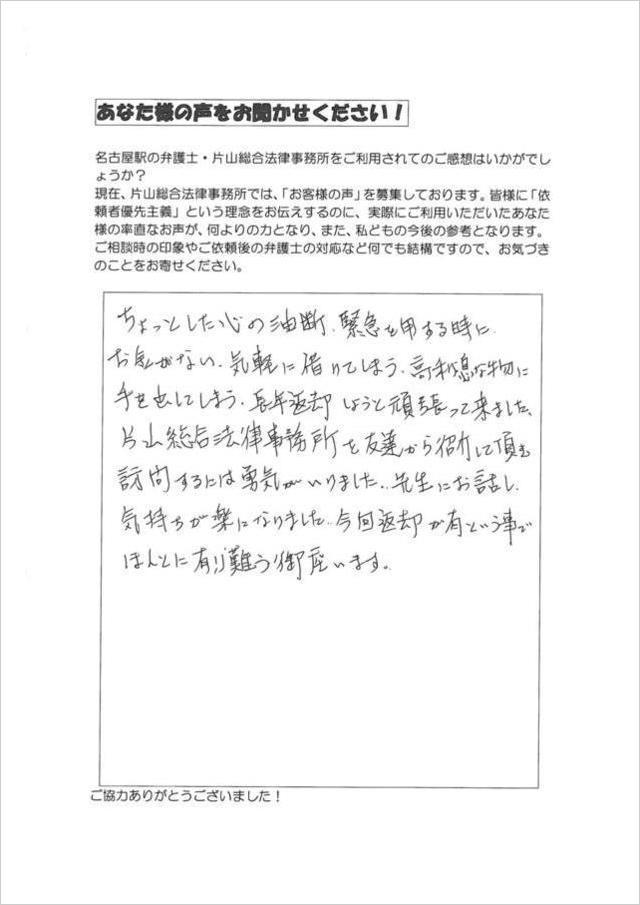 あなた様の声をお聞かせください！
名古屋駅の弁護士・片山総合法律事務所をご利用されてのご感想はいかがでし
ょうか？
現在、片山総合法律事務所では、「お客様の声」を募集しております。皆様に「依
頼者優先主義」という理念をお伝えするのに、実際にご利用いただいたあなた
様の率直なお声が、何よりの力となり、また、私どもの今後の参考となります。
ご相談時の印象やご依頼後の弁護士の対応など何でも結構ですので、お気づき
のことをお寄せください。
ちょっとした心の油断、緊急を用する時に
お金がない、気軽に借りてしまう、高利息な物に
手を出してしまう、長年返却しようと頑張って来ました、
片山総合法律事務所を友達から紹介して頂き
訪問するには勇気がいりました、先生にお話し
気持ちが楽になりました、今回返却が有という事で
ほんとに有り難う御座います。
ご協力ありがとうございました！